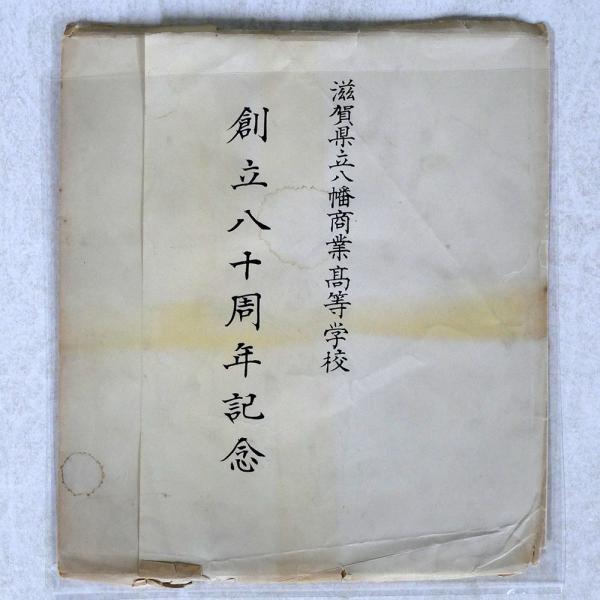 滋賀県立八幡商業髙等学校
創立八十周年記念